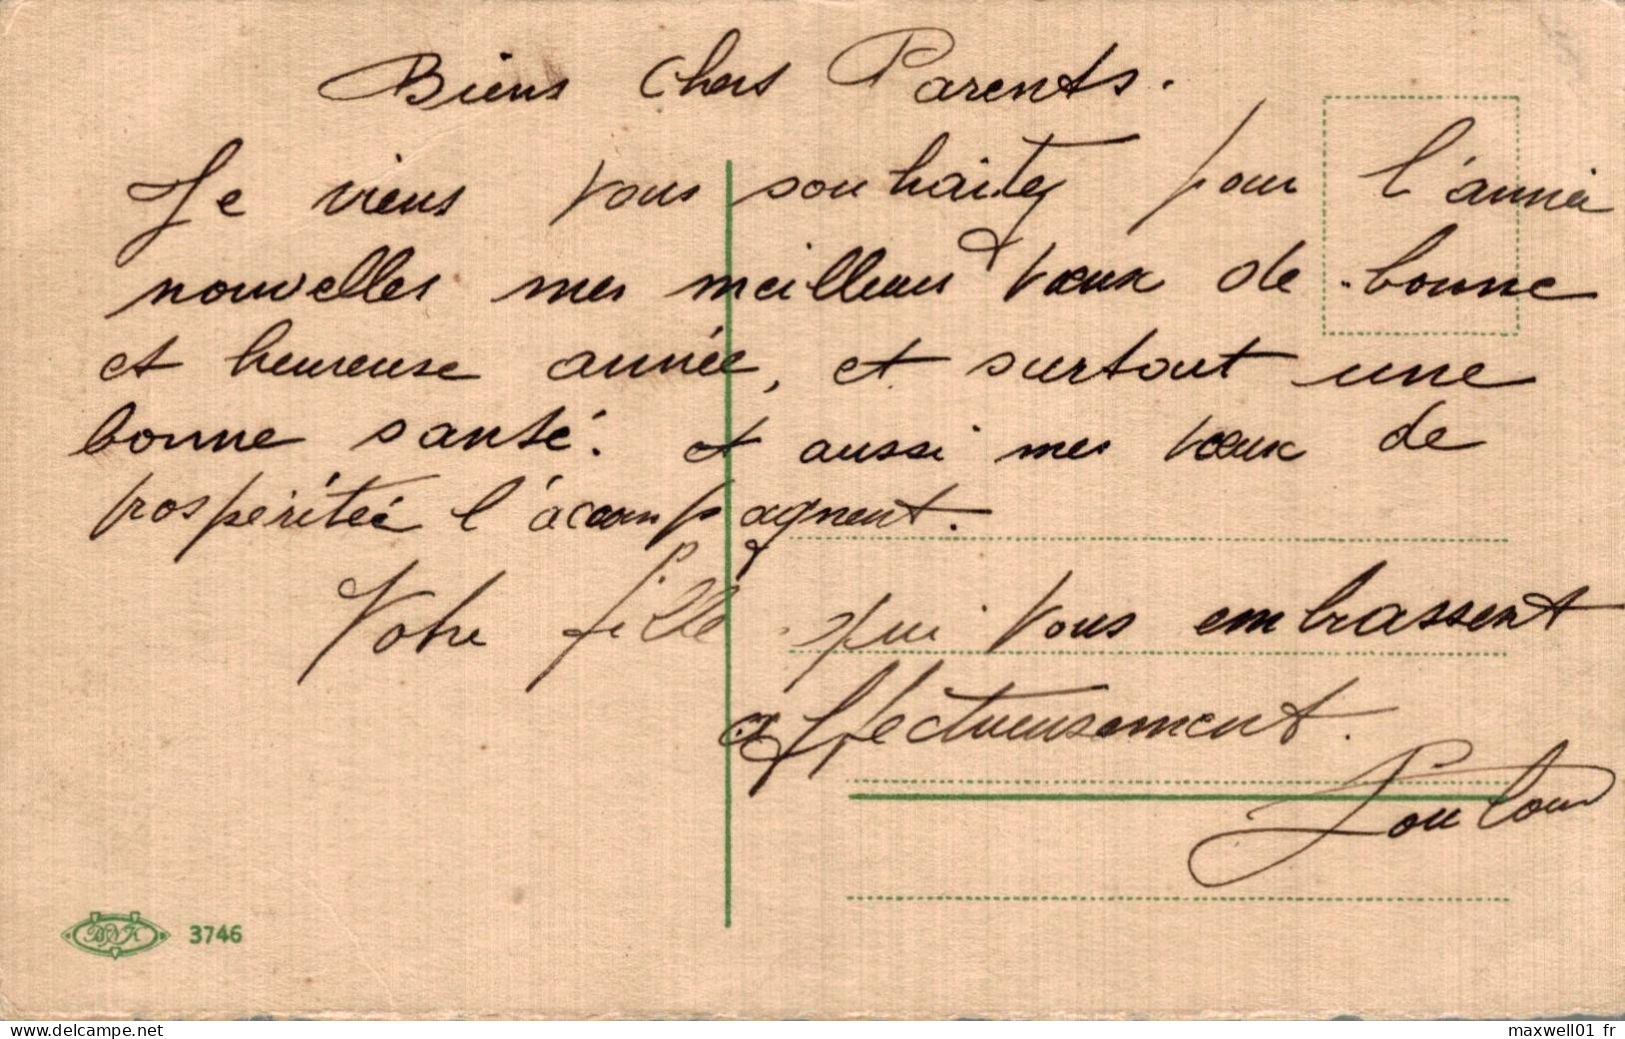 Biens Chers Parents.
Je viens vous souhaiter pour l'année
nouvelles mes meilleurs vœux de bonne
et heureuse année, et surtout une
bonne santé. et aussi mes vœux de
prospéritée l'accompagnent.
Votre fille qui vous embrassent
affectueusement.
Loulou
3746
maxwell01 fr
www.delcampe.net